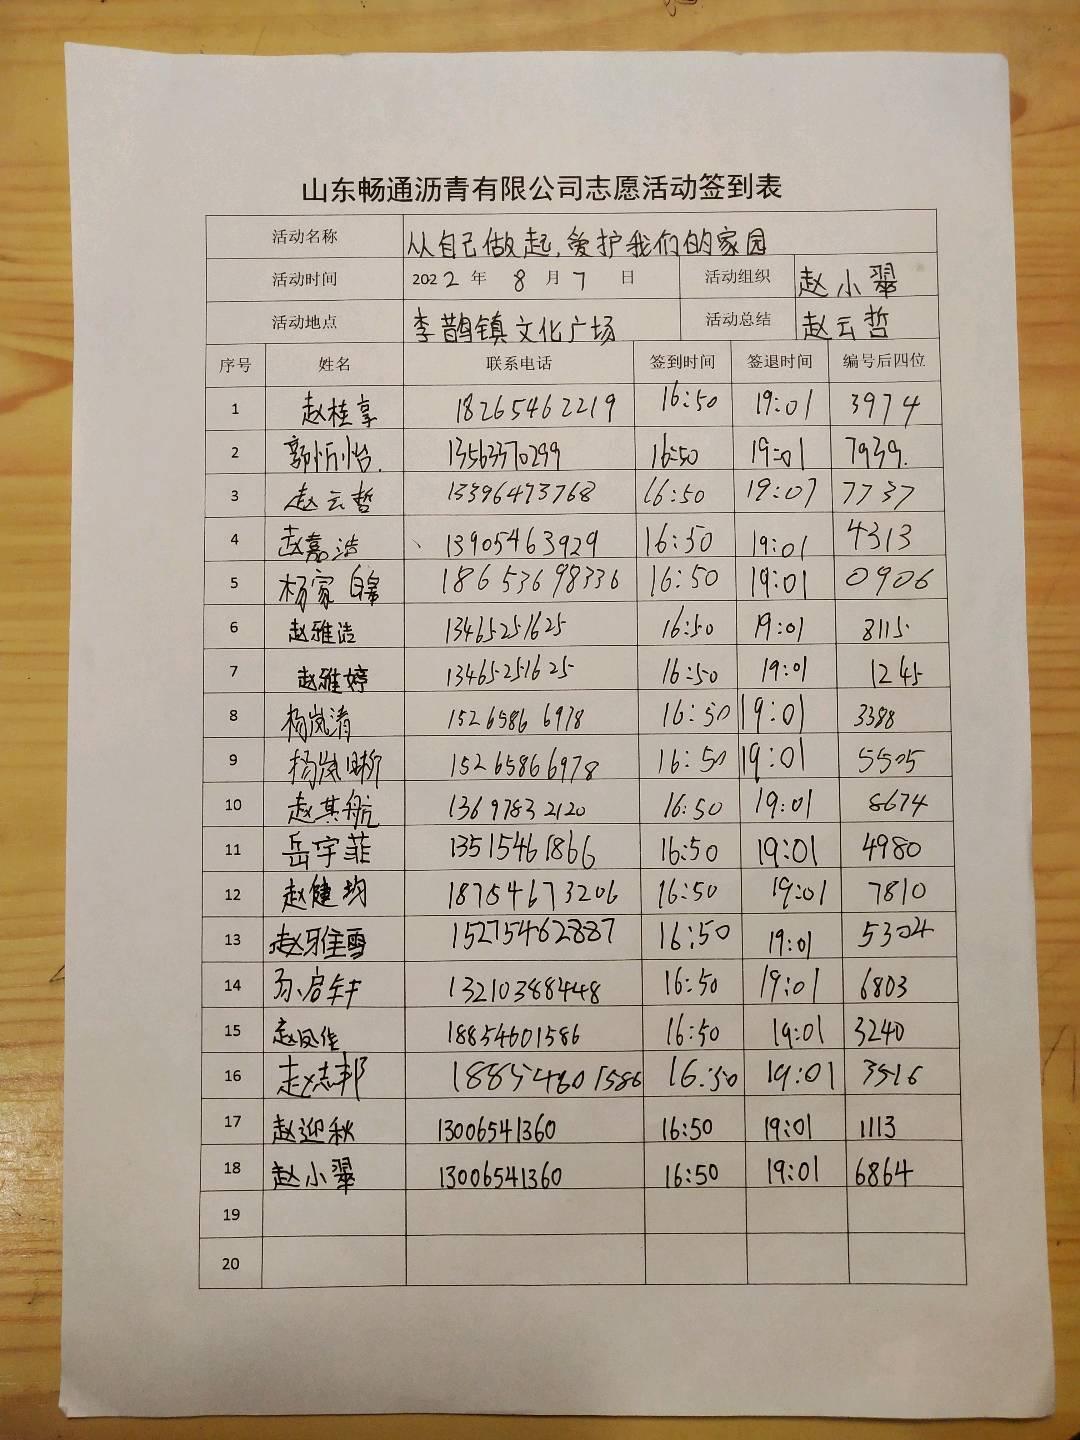 山东畅通沥青有限公司志愿活动签到表
活动名称 从自己做起,爱护我们的家园
活动时间 2022年 8月7日 活动组织 赵小翠
活动地点 李鹊镇文化广场 活动总结 赵云哲
序号 姓名 联系电话 签到时间 签退时间 编号后四位
1 赵桂享 18265462219 16:50 19:01 3974
2 郭忻怡. 13563370299 16:50 19:01 7939.
3 赵云哲 13396473768 16:50 19:07 7737
4 赵嘉浩 13905463929 16:50 19:01 4313
5 杨家 18653698336 16:50 19:01 0906
6 赵雅洁 13465251625 16:50 19:01 8115
7 赵雅婷 13465251625 16:50 19:01 1245
8 杨岚清 15265866978 16:50 19:01 3388
9 杨岚晰 15265866978 16:50 19:01 5505
10 赵其航 13697832120 16:50 19:01 8674
11 岳宇菲 13515461866 16:50 19:01 4980
12 赵健均 18754673206 16:50 19:01 7810
13 赵雅雪 15275462887 16:50 19:01 5304
14 孙启轩 13210388448 16:50 19:01 6803
15 赵凤佐 18854601586 16:50 19:01 3240
16 赵志邦 18854601586 16:50 19:01 3516
17 赵迎秋 13006541360 16:50 19:01 1113
18 赵小翠 13006541360 16:50 19:01 6864
19
20